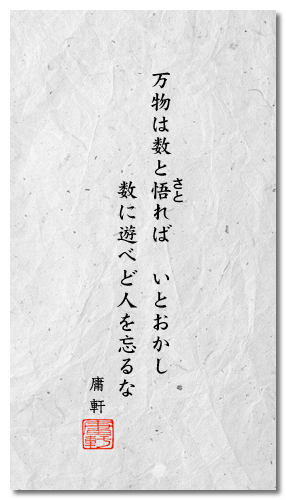 万物は数と悟れば　いとおかし
さと
数に遊べど人を忘るな
庸軒
庸軒